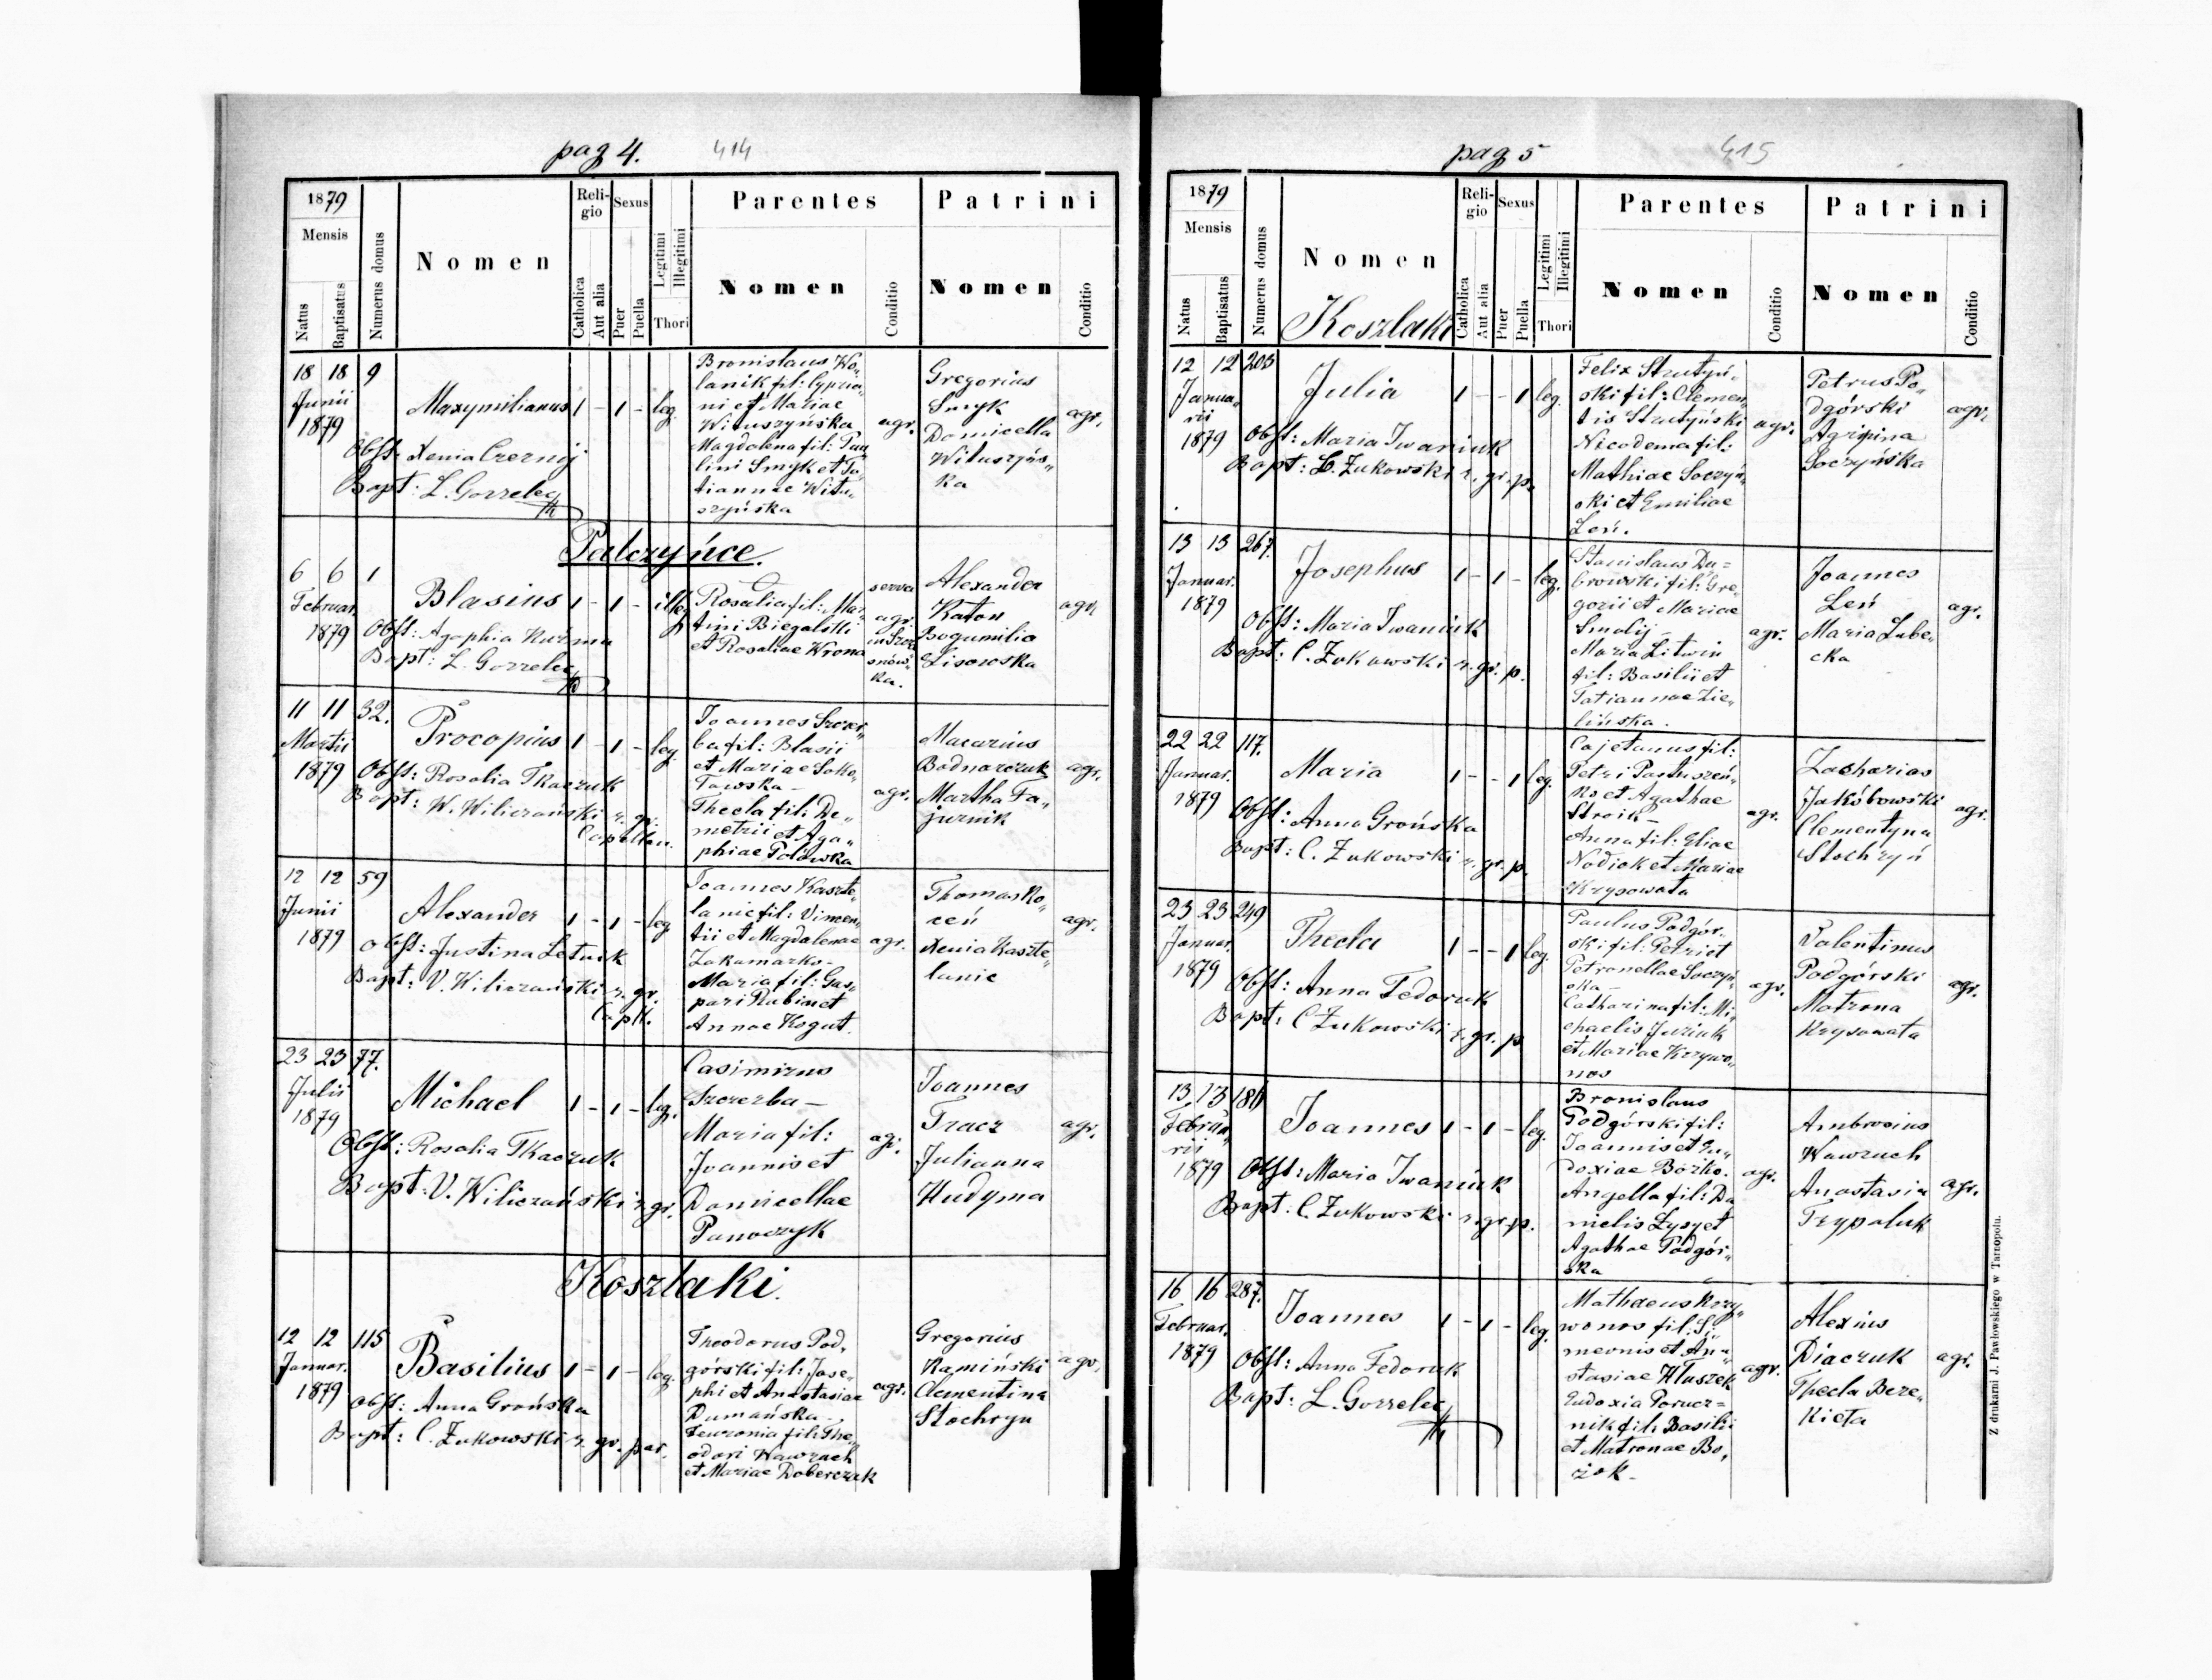 pag 4. 414
1879
Mensis
Natus
Baptisatus
Numerus domus
Nomen
Religio
Catholica
Aut alia
Sexus
Puer
Puella
Legitimi
Illegitimi
Thori
Parentes
Nomen
Conditio
Patrini
Nomen
Conditio
18 18 9
Junii
1879
Maxymilianus 1 - 1 - leg.
Obst: Xenia Czernij
Bapt: L. Gorzelec
Bronislaus Wo„
lanik fil: Cypria„
ni et Mariae
Wituszyńska
Magdalena fil: Pau„
lini Smyk et Ta„
tiannae Witu„
szyńska
agr.
Gregorius
Smyk
Domicella
Wituszyńs„
ka
agr.
Palczyńce.
6 6 1
Februar.
1879
Blasius 1 - 1 - illeg
Obst: Agaphia Kuźma
Bapt: L. Gorzelec
Rosalia fil: Mar„
tini Biegalski
et Rosaliae Wrona
serva
agr.
Alexander
Katon
Bogumilia
Lisowska
agr.
11 11 32.
Martii
1879
Procopius 1 - 1 - leg.
Obst: Rosalia Tkaczuk
Bapt: W. Wiliczański r. gr.
Capellan.
Joannes Szczer„
ba fil: Blasii
et Mariae Soko„
łowska -
Thecla fil: De„
metrii et Aga„
phiae Polowska
agr.
Macarius
Bodnarczuk
Martha Fa„
jurnik
agr.
12 12 59
Junii
1879
Alexander 1 - 1 - leg
Obst: Justina Letnik
Bapt: V. Wiliczański r. gr.
Capll.
Joannes Kaszte„
lanic fil: Vincen„
tii et Magdalenae
Zakamarko -
Maria fil: Gas„
pari Rabin et
Annae Kogut.
agr.
Thomas Ko„
zeń
Xenia Kaszte„
lanic
agr.
23 23 77.
Julii
1879
Michael 1 - 1 - leg.
Obst: Rosalia Tkaczuk
Bapt: V. Wiliczański r. gr.
Casimirus
Szczerba -
Maria fil:
Joannis et
Domicellae
Panoczyk
agr.
Joannes
Tracz
Julianna
Hudyma
agr.
Koszlaki.
12 12 115
Januar.
1879
Basilius 1 - 1 - leg.
Obst: Anna Grońska
Bapt: C. Zukowski r. gr. par.
Theodorus Pod„
górski fil: Jose„
phi et Anastasiae
Dumańska -
Feuronia fil: The„
odori Hawrzuch
et Mariae Doberczak
agr.
Gregorius
Kamiński
Clementina
Stochryn
agr.
pag 5 415
1879
Mensis
Natus
Baptisatus
Numerus domus
Nomen
Koszlaki
Religio
Catholica
Aut alia
Sexus
Puer
Puella
Legitimi
Illegitimi
Thori
Parentes
Nomen
Conditio
Patrini
Nomen
Conditio
12 12 203
Janua„
rii
1879
Julia 1 - - 1 leg.
Obst: Maria Iwaniuk
Bapt: C. Zukowski r. gr. p.
Felix Strutyń„
ski fil: Clemen„
tis Strutyński
Nicodema fil:
Mathiae Soczyń„
ski et Emiliae
Leń.
agr.
Petrus Po„
dgórski
Agripina
Soczyńska
agr.
13 13 267.
Januar.
1879
Josephus 1 - 1 - leg.
Obst: Maria Iwaniuk
Bapt: C. Zukowski r. gr. p.
Stanislaus Du=
browski fil: Gre„
gorii et Mariae
Smalij -
Maria Litwin
fil: Basilii et
Tatiannae Zie„
lińska.
agr.
Joannes
Leń
Maria Lube„
cka
agr.
22 22 117.
Januar.
1879
Maria 1 - - 1 leg.
Obst: Anna Grońska
Bapt: C. Zukowski r. gr. p.
Cajetanus fil:
Petri Pastuszeń„
ko et Agathae
Stroik -
Anna fil: Eliae
Nodiok et Mariae
Krysowata
agr.
Zacharias
Jakóbowski
Clementyna
Stochryń
agr.
23 23 249
Januar.
1879
Thecla 1 - - 1 leg.
Obst: Anna Fedoruk
Bapt: C Zukowski r. gr. p
Paulus Podgór„
ski fil: Petri et
Petronellae Soczyń„
ska -
Catharina fil: Mi„
chaelis Juziuk
et Mariae Krzywo„
nos
agr.
Valentinus
Podgórski
Matrona
Krysowata
agr.
13, 13 181
Februa„
rii
1879
Joannes 1 - 1 - leg.
Obst: Maria Iwaniuk
Bapt: C. Zukowski r. gr. p.
Bronislaus
Podgórski fil:
Joannis et Eu„
doxiae Bożko.
Angella fil: Da
nielis Łysy et
Agathae Podgór„
ska
agr.
Ambrosius
Hawrzuch
Anastasia
Trypaluk
agr.
16 16 287.
Februar.
1879
Joannes 1 - 1 - leg.
Obst: Anna Fedoruk
Bapt: L. Gorzelec
Mathaeus Krzy„
wonos fil: Si„
meonis et Ana„
stasiae Hłuszek
Eudoxia Porucz=
nik fil: Basilii
et Matronae Bo„
żok -
agr.
Alexius
Diaczuk
Thecla Beze„
kieta
agr.
Z drukarni J. Pawłowskiego w Tarnopolu.